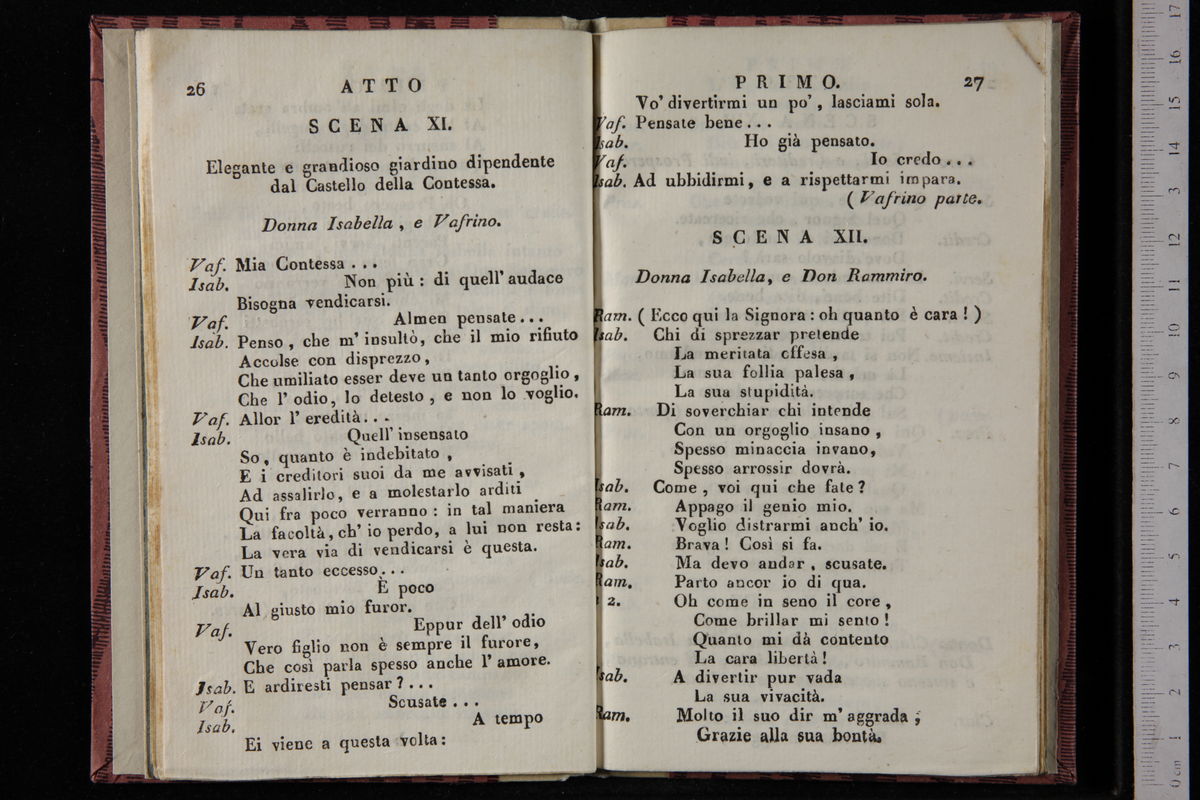 26 ATTO
SCENA XI.
Elegante e grandioso giardino dipendente
dal Castello della Contessa.
Donna Isabella , e Vafrino.
Vaf. Mia Contessa . . .
Isab. Non più : di quell' audace
Bisogna vendicarsi.
Vaf. Almen pensate . . .
Isab. Penso , che m' insultò, che il mio rifiuto
Accolse con disprezzo ,
Che umiliato esser deve un tanto orgoglio ,
Che l' odio, lo detesto , e non lo voglio.
Vaf. Allor l' eredità . . .
Isab. Quell' insensato
So, quanto è indebitato ,
E i creditori suoi da me avvisati ,
Ad assalirlo, e a molestarlo arditi
Qui fra poco verranno : in tal maniera
La facoltà, ch' io perdo, a lui non resta:
La vera via di vendicarsi è questa.
Vaf. Un tanto eccesso . . .
Isab. È poco
Al giusto mio furor.
Vaf. Eppur dell' odio
Vero figlio non è sempre il furore,
Che così parla spesso anche l' amore.
Isab. E ardiresti pensar ? . . .
Vaf. Scusate . . .
Isab. A tempo
Ei viene a questa volta :
PRIMO. 27
Vo' divertirmi un po' , lasciami sola.
Vaf. Pensate bene . . .
Isab. Ho già pensato.
Vaf. Io credo . . .
Isab. Ad ubbidirmi, e a rispettarmi impara.
( Vafrino parte.
SCENA XII.
Donna Isabella, e Don Rammiro.
Ram. ( Ecco qui la Signora : oh quanto è cara ! )
Isab. Chi di sprezzar pretende
La meritata offesa ,
La sua follia palesa ,
La sua stupidità.
Ram. Di soverchiar chi intende
Con un orgoglio insano ,
Spesso minaccia invano,
Spesso arrossir dovrà.
Isab. Come , voi qui che fate ?
Ram. Appago il genio mio.
Isab. Voglio distrarmi anch' io.
Ram. Brava ! Così si fa.
Isab. Ma devo andar , scusate.
Ram. Parto ancor io di qua.
2. Oh come in seno il core ,
Come brillar mi sento !
Quanto mi dà contento
La cara libertà !
Isab. A divertir pur vada
La sua vivacità.
Ram. Molto il suo dir m' aggrada ;
Grazie alla sua bontà.
0 cm 1 2 3 4 5 6 7 8 9 10 11 12 13 14 15 16 17